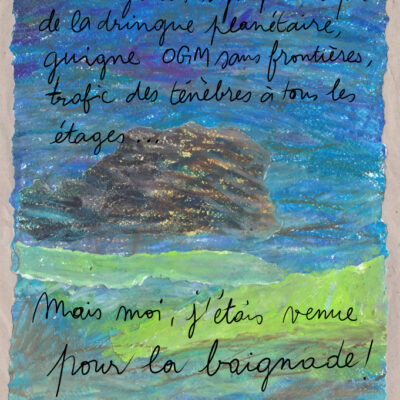 de la dringue planétaire,
guigne OGM sans frontières,
trafic des ténèbres à tous les
étages...
Mais moi, j'étais venue
pour la baignade!